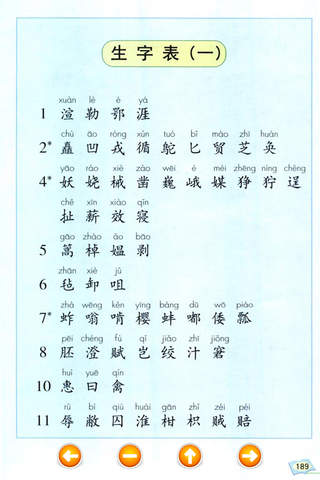 生字表(一)
xuàn lè è yá
1 渲 勒 鄂 涯
chù āo róng xún tuó bǐ mào zhī huàn
2* 矗 凹 戎 循 鸵 匕 贸 芝 奂
yāo ráo xiè záo wēi é mèi zhēng níng chěng
4* 妖 娆 械 凿 巍 峨 媚 狰 狞 逞
chě xīn xiào qǐn
扯 薪 效 寝
gāo zhào ǎo bāo
5 篙 棹 媪 剥
zhān xiè jǔ
6 毡 卸 咀
zhà wēng kěn yīng bàng dū wō piáo
7* 蚱 嗡 啃 樱 蚌 嘟 倭 瓢
pēi chéng fù qǐ jiǎo zhī jiǒng
8 胚 澄 赋 岂 绞 汁 窘
huì yuē qín
10 惠 曰 禽
rǔ bì qiú huái gān zhǐ zéi péi
11 辱 敝 囚 淮 柑 枳 贼 赔
189